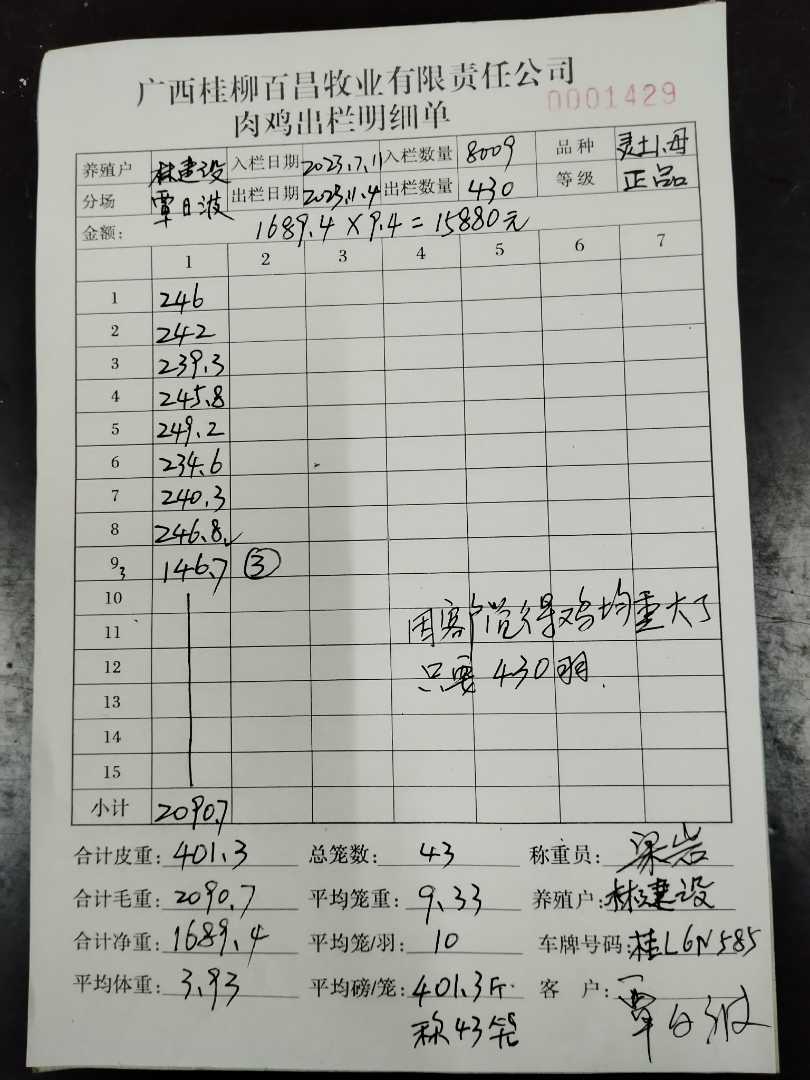 广西桂柳百昌牧业有限责任公司
肉鸡出栏明细单 0001429
养殖户 林建设 入栏日期 2023.7.11 入栏数量 8009 品种
分场 覃日波 出栏日期 2023.11.4 出栏数量 430 等级 正品
金额: 1689.4×9.4=15880元
1 2 3 4 5 6 7
1 246
2 242
3 239.3
4 245.8
5 249.2
6 234.6
7 240.3
8 246.8
9 3 146.7 ③
10
11 因客户觉得鸡均重大了
12 只要430羽.
13
14
15
小计 2090.7
合计皮重: 401.3 总笼数: 43 称重员: 梁岩
合计毛重: 2090.7 平均笼重: 9.33 养殖户: 林建设
合计净重: 1689.4 平均笼/羽: 10 车牌号码: 桂L6N585
平均体重: 3.93 平均磅/笼: 401.3斤 客户: 覃日波
称43笼